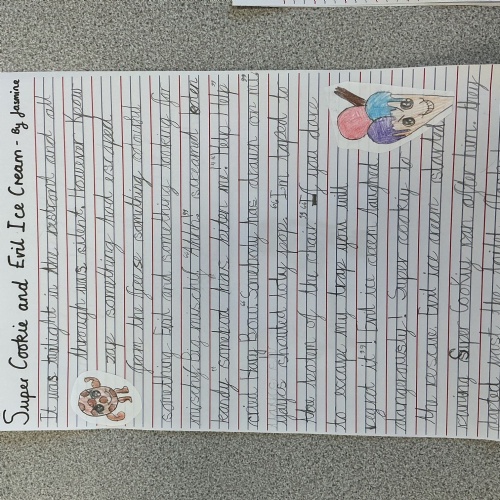 Super Cookie and Evil Ice Cream - By Jasmine
It was twilight in the restront and all
though was silent. However Know
something had iscaped
from the freeze something odvish
something Evil and something looking for
mischif. By mischif "Ahh!" screamed
"somebod has biten me. Help Help"
cris Hary Bom. "Somebody has drawn on me"
shouted loly pop. "I'm taped to
the bottom of the chair" "If you dare
to escape my trap you will
regret it" Evil ice cream laughed
dangerously. Super cooky to
the rescue Evil ice cream started
runing Super Cooky ran after him. They